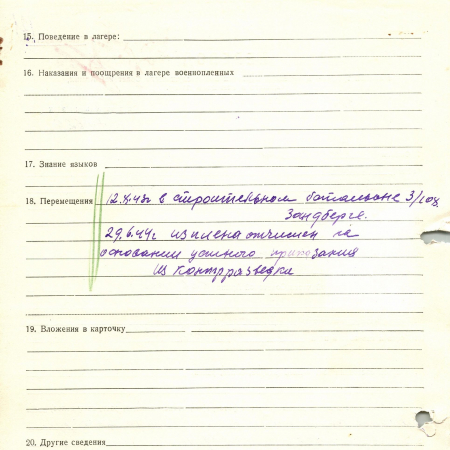 15. Поведение в лагере:
16. Наказания и поощрения в лагере военнопленных
17. Знание языков
18. Перемещения 12.X.43г в строительном батальоне 3/
Зандберге.
29.6.44г из плена отчислен на
основании устного приказания
из контрразведки
19. Вложения в карточку
20. Другие сведения